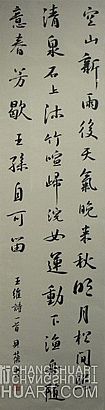 空山新雨後天氣晚来秋明月松間照
清泉石上流竹喧歸浣女蓮動下漁舟隨
意春芳歇王孫自可留
王維詩一首